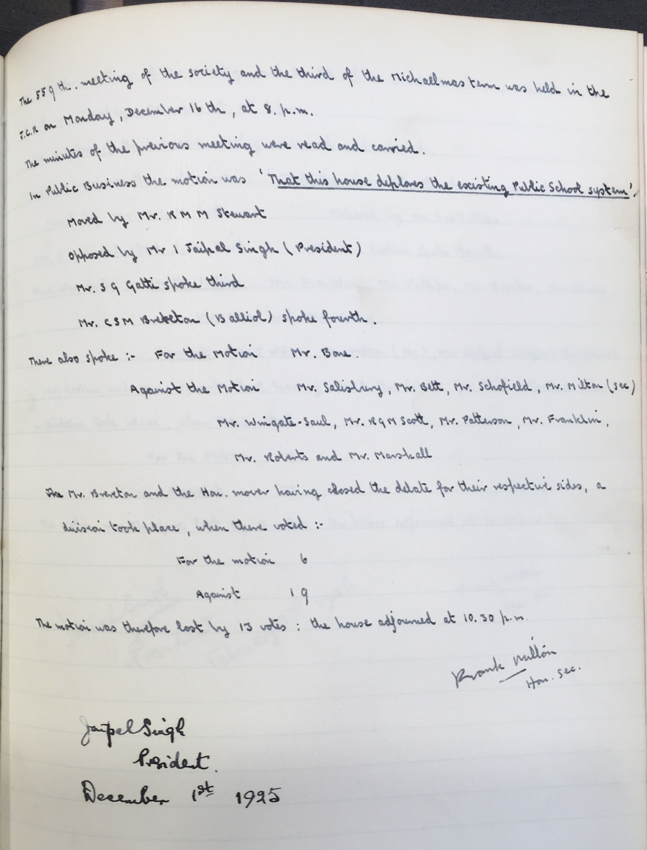 The 559th. meeting of the society and the third of the Michaelmas term was held in the
J.C.R on Monday, December 16th, at 8. p.m.
The minutes of the previous meeting were read and carried.
In Public Business the motion was 'That this house deplores the existing Public School system'.
Moved by Mr. R M M Stewart
Opposed by Mr I Jaipal Singh (President)
Mr. S G Gatti spoke third
Mr. C S M Brereton (Balliol) spoke fourth.
There also spoke :- For the Motion Mr. Bone.
Against the Motion Mr. Salisbury, Mr. Bett, Mr. Schofield, Mr. Milton (Sec)
Mr. Wingate-Saul, Mr. R G M Scott, Mr. Patterson, Mr. Franklin,
Mr. Roberts and Mr. Marshall
Mr. Brereton and the Hon. mover having closed the debate for their respective sides, a
division took place, when there voted :-
For the motion 6
Against 19
The motion was therefore lost by 13 votes : the house adjourned at 10.30 p.m.
Frank Milton
Hon. Sec.
Jaipal Singh
President.
December 1st 1925